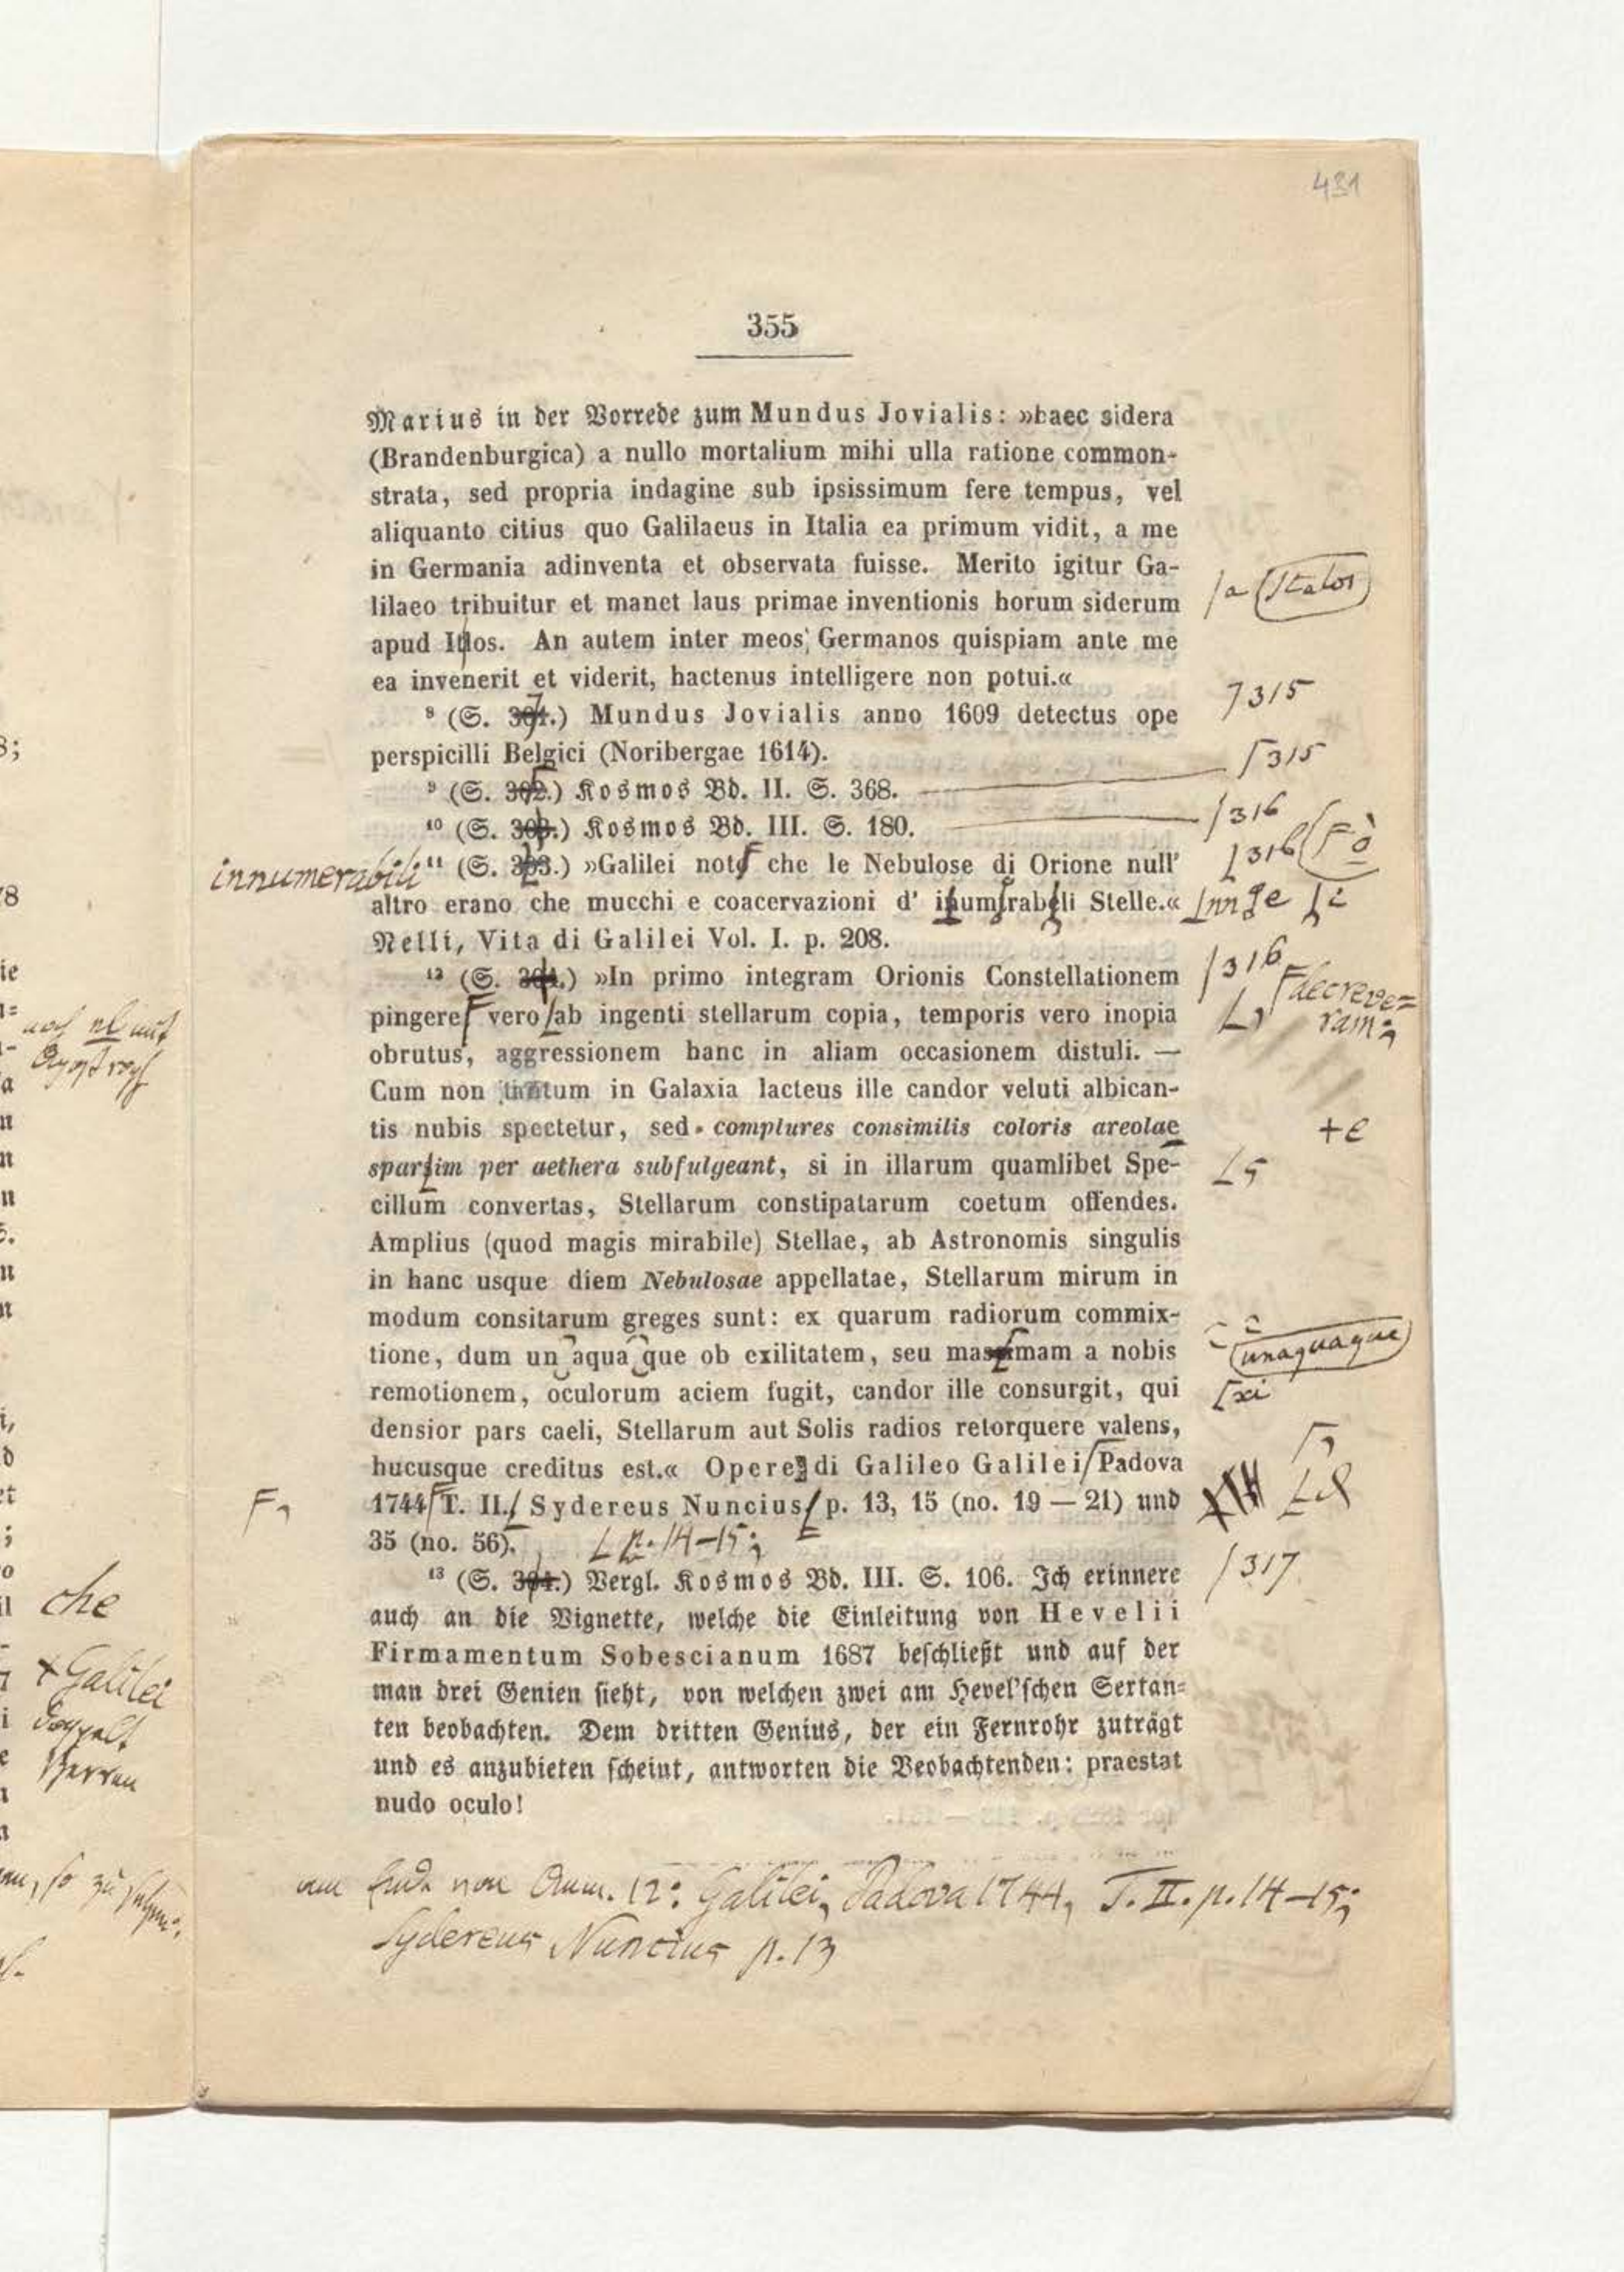 431
355
Marius in der Vorrede zum Mundus Jovialis: »haec sidera
(Brandenburgica) a nullo mortalium mihi ulla ratione common-
strata, sed propria indagine sub ipsissimum fere tempus, vel
aliquanto citius quo Galilaeus in Italia ea primum vidit, a me
in Germania adinventa et observata fuisse. Merito igitur Ga-
lilaeo tribuitur et manet laus primae inventionis horum siderum
/a Italos
apud Itlos. An autem inter meos Germanos quispiam ante me
ea invenerit et viderit, hactenus intelligere non potui.«
315
⁸ (S. 301.) Mundus Jovialis anno 1609 detectus ope
perspicilli Belgici (Noribergae 1614).
315
⁹ (S. 302.) Kosmos Bd. II. S. 368.
316
¹⁰ (S. 303.) Kosmos Bd. III. S. 180.
316 ò
innumerabili
¹¹ (S. 303.) »Galilei note che le Nebulose di Orione null'
altro erano che mucchi e coacervazioni d' inumrabeli Stelle.«
nn e i
Nelli, Vita di Galilei Vol. I. p. 208.
316
¹² (S. 304.) »In primo integram Orionis Constellationem
decreve=
ram;
pingere vero ab ingenti stellarum copia, temporis vero inopia
obrutus, aggressionem hanc in aliam occasionem distuli. —
Cum non tantum in Galaxia lacteus ille candor veluti albican-
tis nubis spectetur, sed complures consimilis coloris areolae
+e
sparsim per aethera subfulgeant, si in illarum quamlibet Spe-
s
cillum convertas, Stellarum constipatarum coetum offendes.
Amplius (quod magis mirabile) Stellae, ab Astronomis singulis
in hanc usque diem Nebulosae appellatae, Stellarum mirum in
modum consitarum greges sunt: ex quarum radiorum commix-
unaquaque
tione, dum un aqua que ob exilitatem, seu masimam a nobis
xi
remotionem, oculorum aciem fugit, candor ille consurgit, qui
densior pars caeli, Stellarum aut Solis radios retorquere valens,
hucusque creditus est.« Opere di Galileo Galilei Padova
1744 T. II. Sydereus Nuncius p. 13, 15 (no. 19 — 21) und
35 (no. 56).
p. 14–15;
317
¹³ (S. 304.) Vergl. Kosmos Bd. III. S. 106. Ich erinnere
auch an die Vignette, welche die Einleitung von Hevelii
Firmamentum Sobescianum 1687 beschließt und auf der
man drei Genien sieht, von welchen zwei am Hevel'schen Sertan-
ten beobachten. Dem dritten Genius, der ein Fernrohr zuträgt
und es anzubieten scheint, antworten die Beobachtenden: praestat
nudo oculo!
am Ende von Anm. 12: Galilei, Padova 1744, T. II. p. 14–15;
Sydereus Nuncius p. 13
che
+Galilei
doppelt